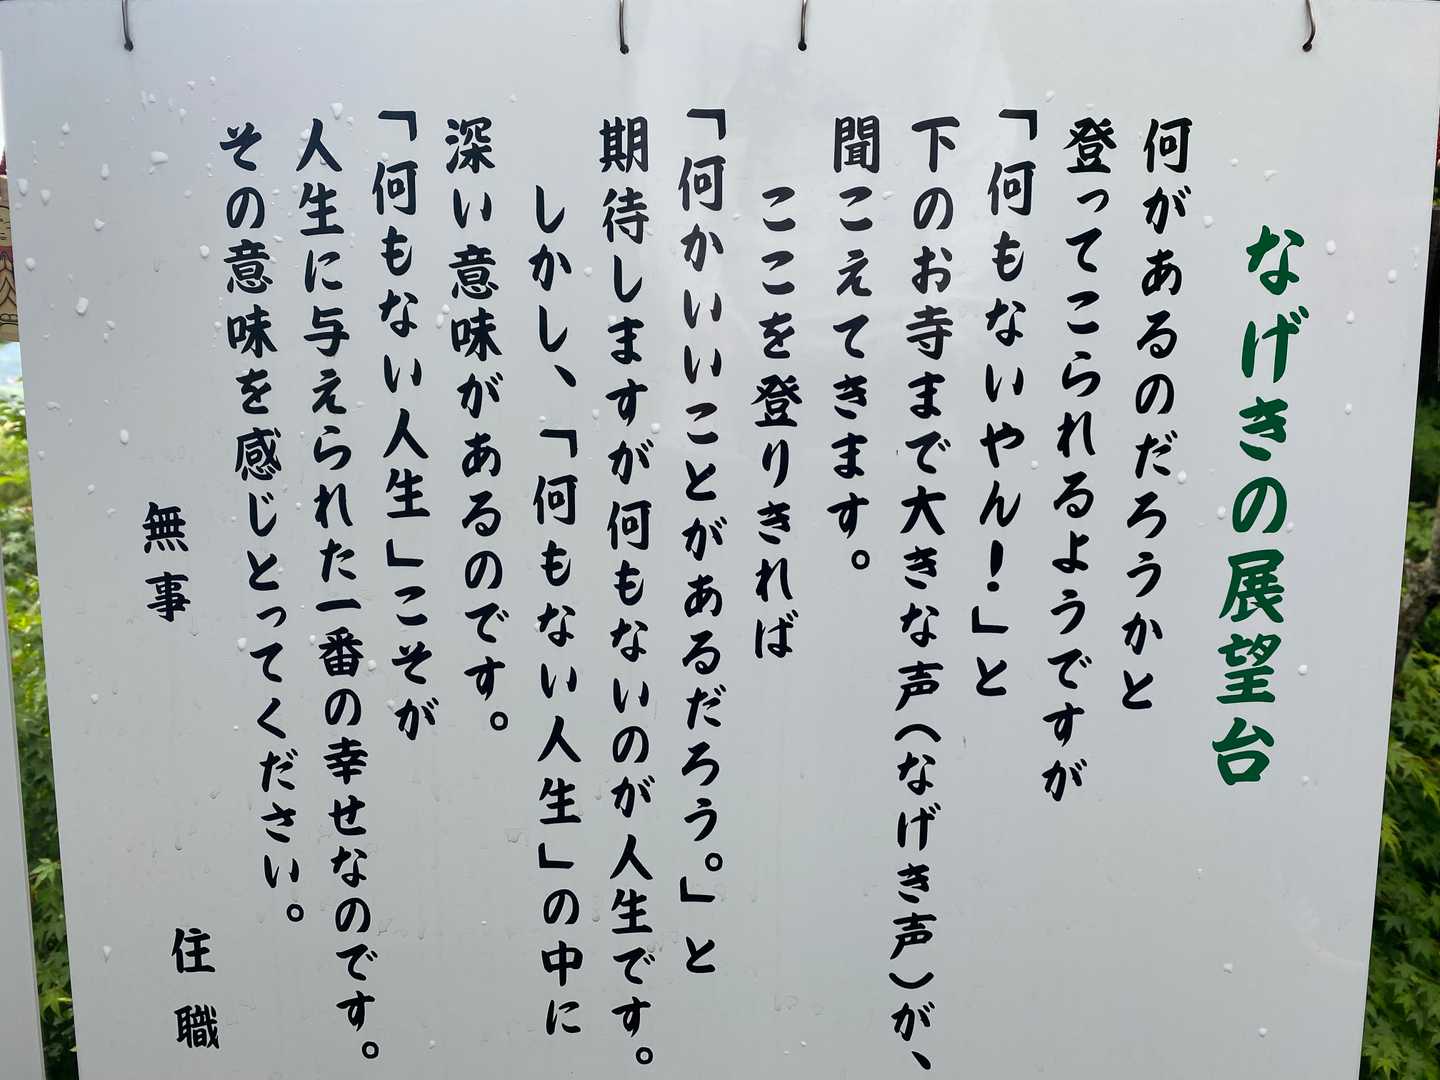 なげきの展望台
何があるのだろうかと
登ってこられるようですが
「何もないやん！」と
下のお寺まで大きな声(なげき声)が、
聞こえてきます。
ここを登りきれば
「何かいいことがあるだろう。」と
期待しますが何もないのが人生です。
しかし、「何もない人生」の中に
深い意味があるのです。
「何もない人生」こそが
人生に与えられた一番の幸せなのです。
その意味を感じとってください。
無事 住職